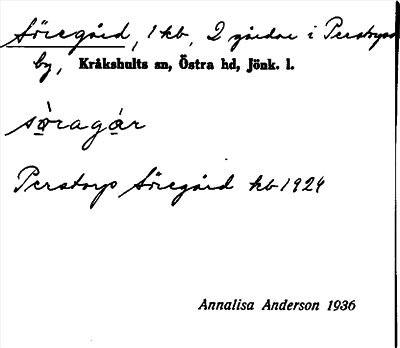 Söregård, 1 kb, 2 gårdar i Perstorps
by, Kråkshults sn, Östra hd, Jönk. l.
sö̀ragár
Perstorp Söregård kb 1924
Annalisa Anderson 1936